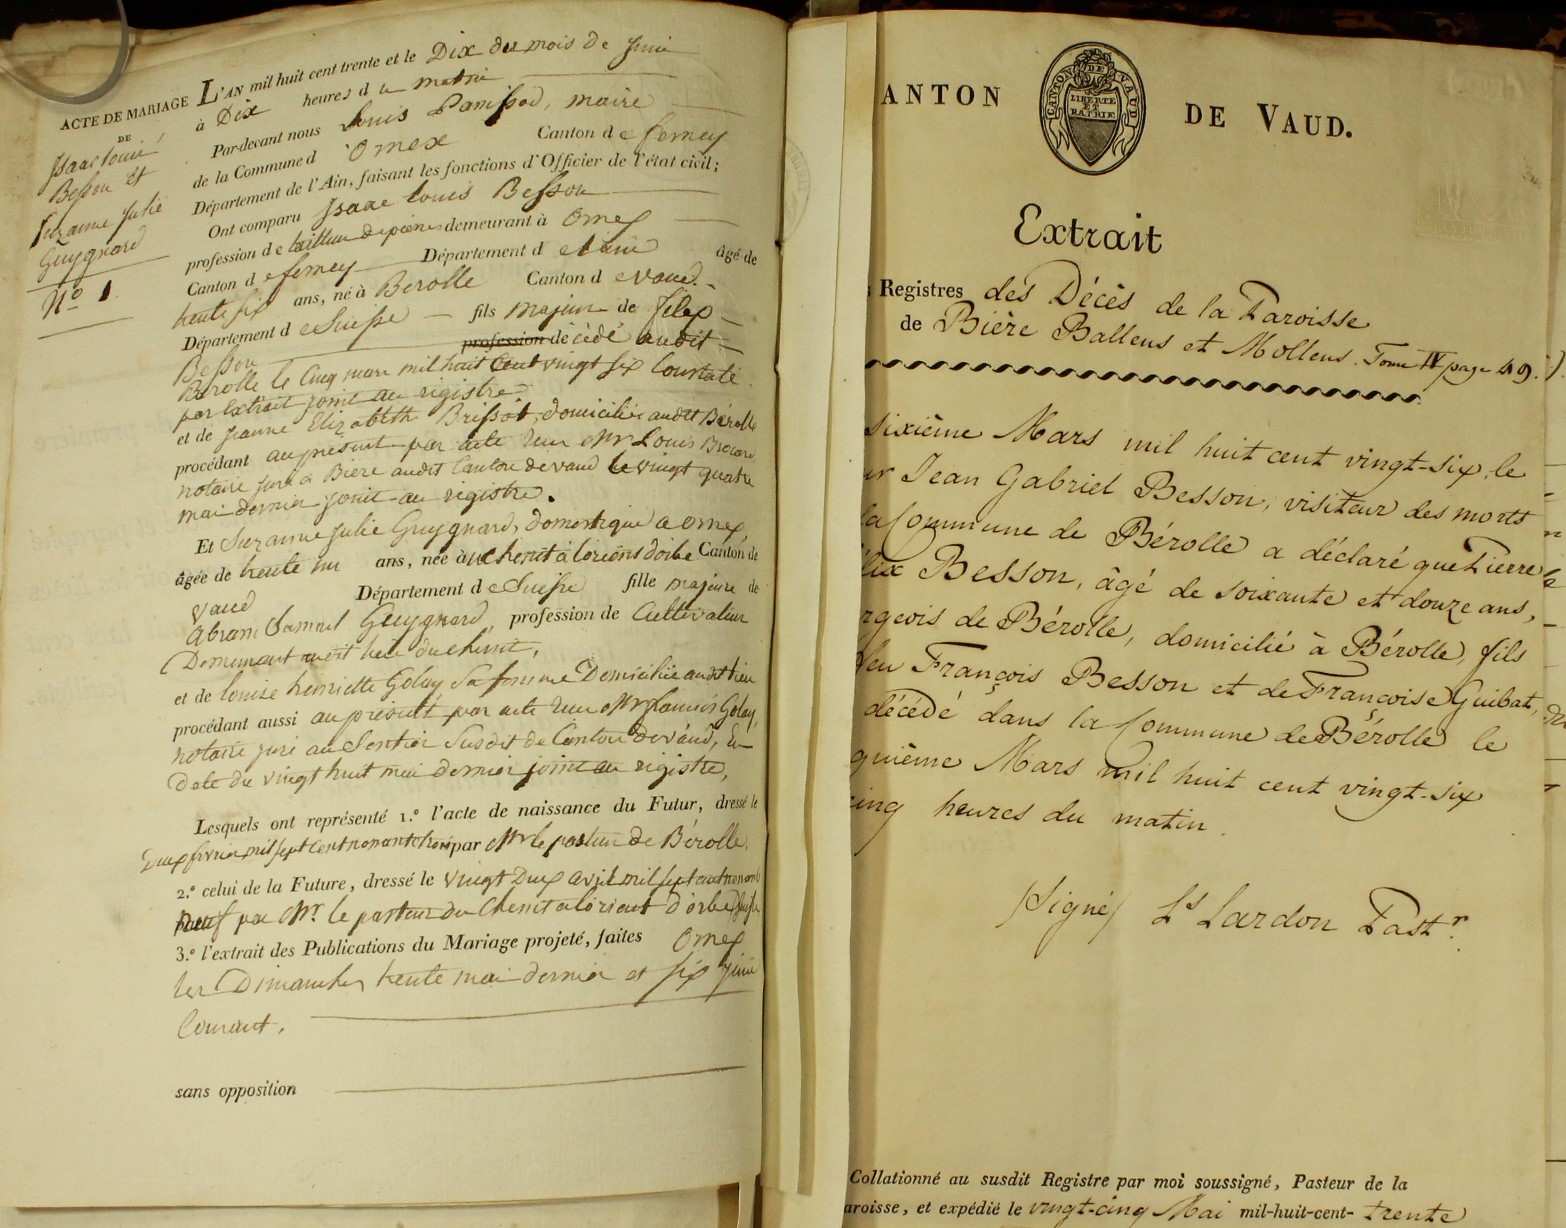 ACTE DE MARIAGE
DE
Isaac Louis
Besson et
Suzanne Julie
Guygnard
N.º 1.
L'AN mil huit cent trente et le Dix du mois de Juin
à Dix heures d u matin
Par-devant nous Louis Panissod, maire
de la Commune d 'Ornex Canton d e ferney
Département de l'Ain, faisant les fonctions d'Officier de l'état civil;
Ont comparu Isaac Louis Besson
profession d e tailleur de pierres demeurant à Ornex
Canton d e ferney Département d e l'ain âgé de
trente six ans, né à Berolle Canton d e vaud
Département d e Suisse fils majeur de felex
Besson profession décédé audit
Berolle le Cinq mars mil huit Cent vingt six Constaté
par Extrait joint au registre
et de Jeanne Elizabeth Brissot, domiciliée audit Bérolle
procédant au présent par acte reçu Mr Louis
notaire juré à Biere audit Canton de vaud le vingt quatre
mai dernier joint au registre.
Et Suzanne Julie Guygnard, domestique à Ornex
âgée de trente un ans, née à u Chenit à l'orient d'orbe Canton de
vaud Département d e Suisse fille majeure de
Abram Samuel Guygnard, profession de Cultivateur
Demeurant audit lieu du chenit,
et de Louise henriette Golay Sa femme Domiciliée audit lieu
procédant aussi au présent par acte reçu Mr Golay,
notaire juré au Sentier Susdit de Canton de vaud, En
Date du vingt huit mai dernier joint au registre,
Lesquels ont représenté 1.º l'acte de naissance du Futur, dressé le
Deux fevrier mil sept Cent nonante trois par Mr le pasteur de Bérolle.
2.º celui de la Future, dressé le vingt Deux avril mil sept cent nonante
neuf par Mr. le pasteur du Chenit à l'orient d'orbe Suisse
3.º l'extrait des Publications du Mariage projeté, faites Ornex
les Dimanches trente mai dernier et six juin
Courant,
sans opposition
ANTON DE VAUD.
CANTON DE VAUD
LIBERTE
ET
PATRIE
Extrait
Registres des Décès de la Paroisse
de Bière Ballens et Mollens. Tome IV page 49.
sixième Mars mil huit cent vingt-six, le
ur Jean Gabriel Besson, visiteur des morts
la Commune de Bérolle a déclaré que Pierre
lix Besson, âgé de soixante et douze ans,
rgeois de Bérolle, domicilié à Bérolle, fils
feu François Besson et de Françoise Guibat,
décédé dans la Commune de Bérolle le
quième Mars mil huit cent vingt-six
cinq heures du matin.
/Signé/ Ls Lardon Past.r
Collationné au susdit Registre par moi soussigné, Pasteur de la
aroisse, et expédié le vingt-cinq Mai mil-huit-cent- trente